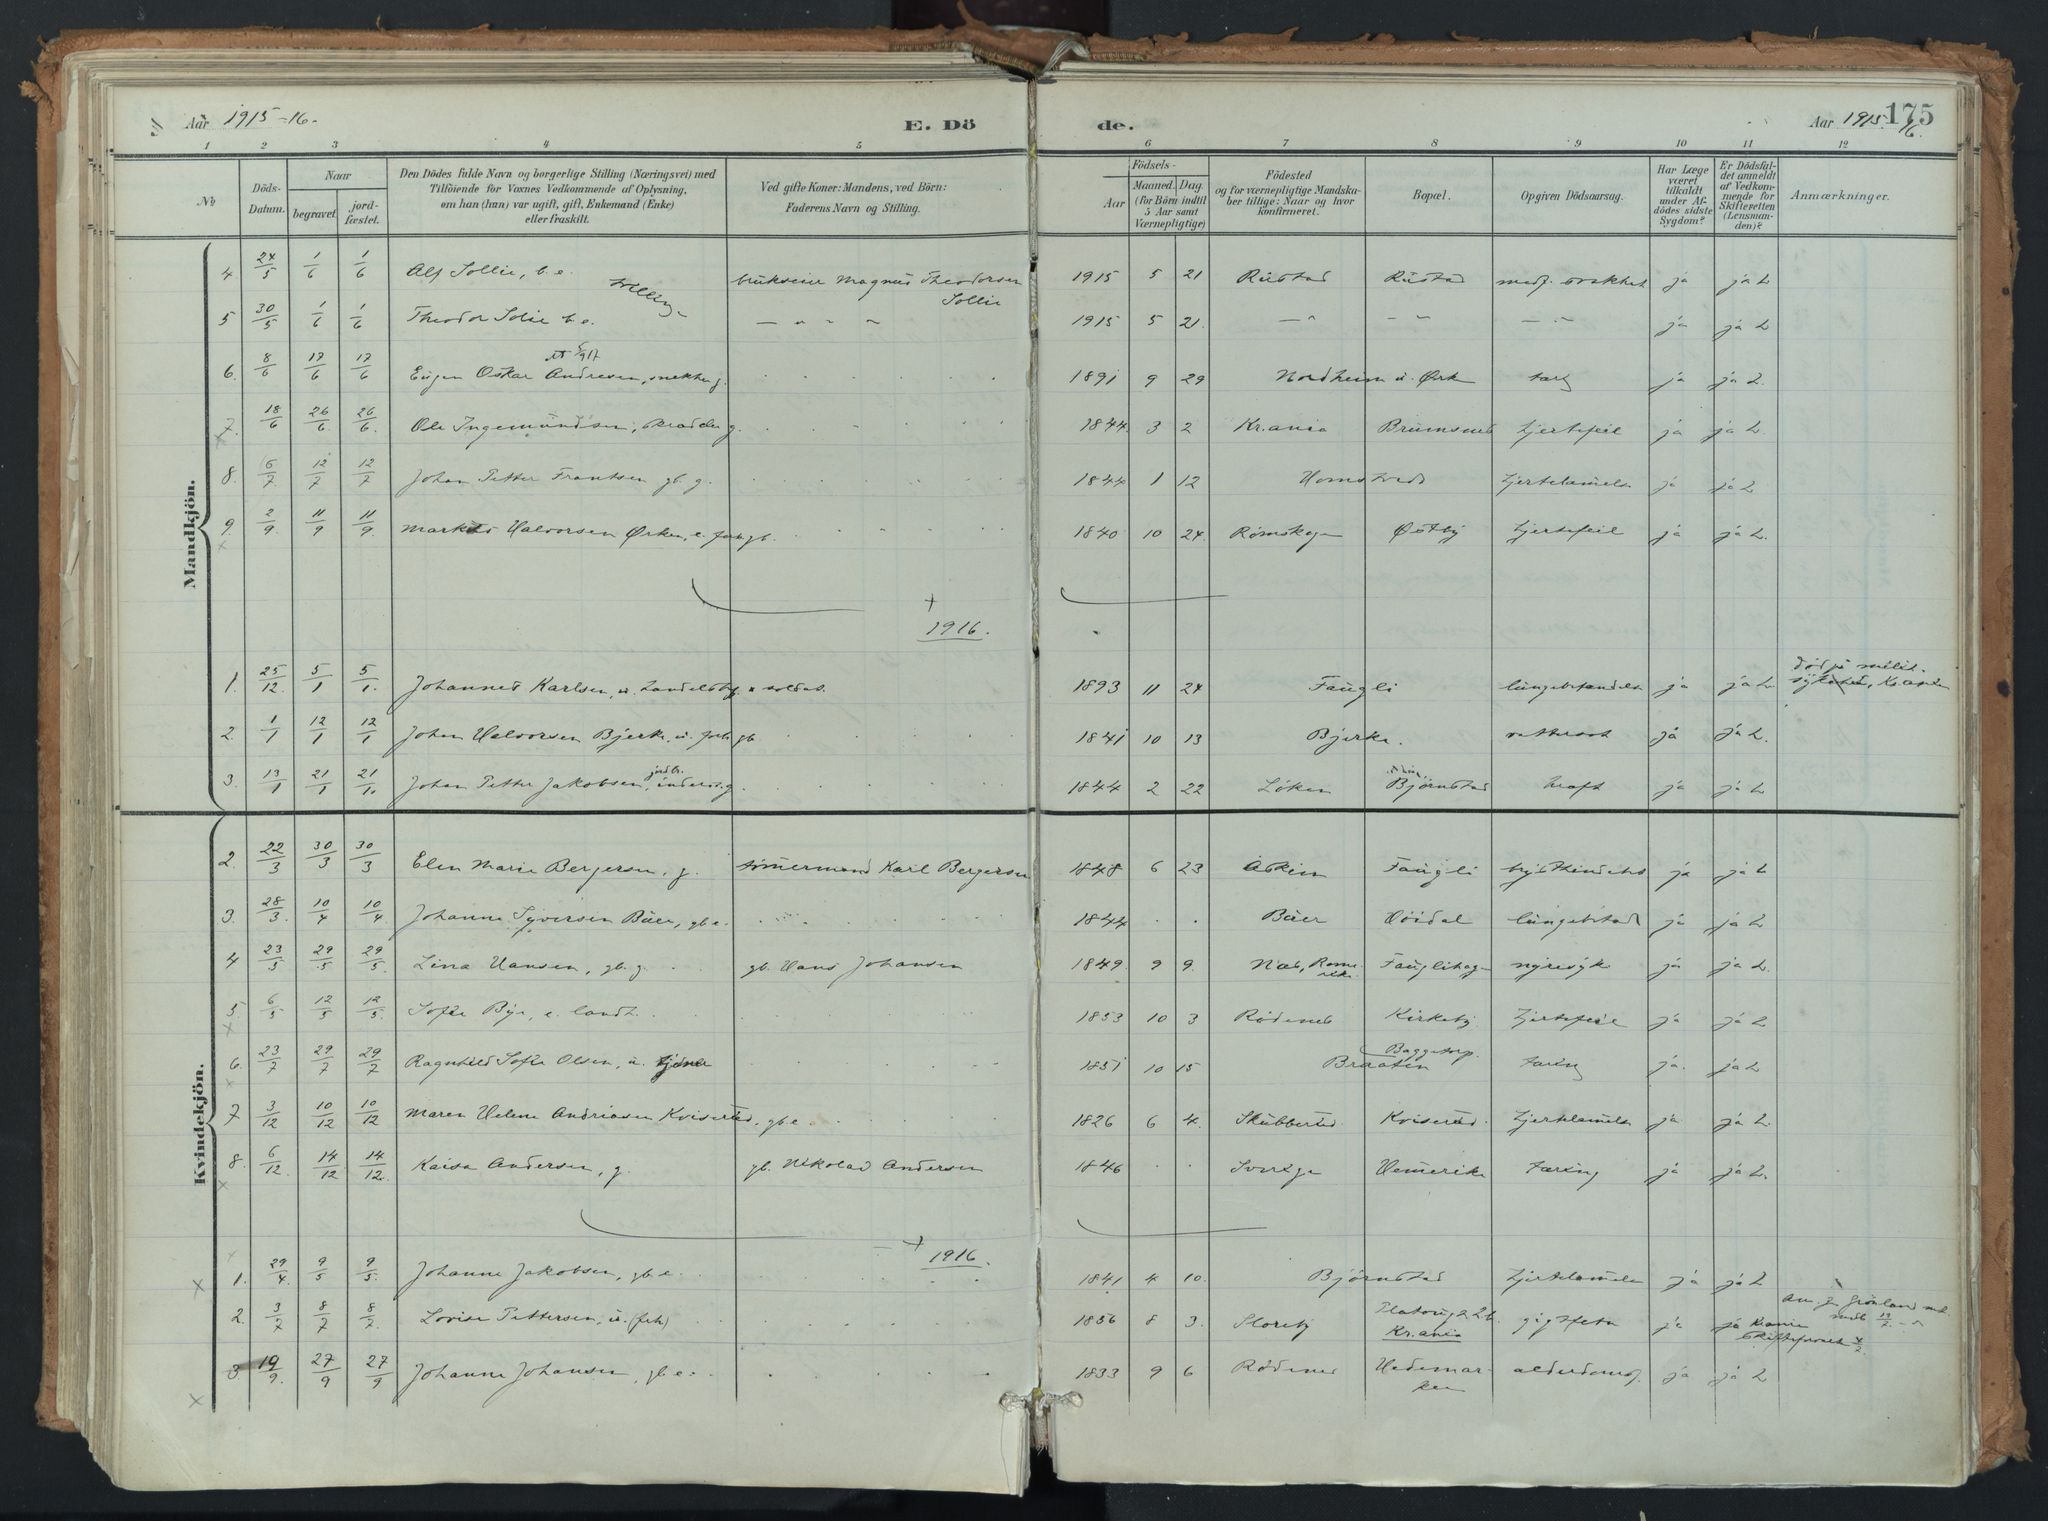 Aar 1915-16.
E. Dö
de.
Aar 1915-16.
175
1 2 3 4 5 6 7 8 9 10 11 12
No
Döds-Datum.
Naar
begravet.
jord-fæstet.
Den Dödes fulde Navn og borgerlige Stilling (Næringsvei) med
Tilföiende for Voxnes Vedkommende af Oplysning,
om han (hun) var ugift, gift, Enkemand (Enke)
eller fraskilt.
Ved gifte Koner: Mandens, ved Börn:
Faderens Navn og Stilling.
Födsels-
Aar
Maaned. Dag.
(for Börn indtil
5 Aar samt
Værnepligtige)
Födested
og for værnepligtige Mandska-
ber tillige: Naar og hvor
konfirmeret.
Bopæl.
Opgiven Dödsaarsag.
Har Læge
været
tilkaldt
under Af-
dödes sidste
Sygdom?
Er Dödsfal-
det anmeldt
af Vedkom-
mende for
Skifteretten
(Lensman-
den)?
Anmærkninger.
Mandkjön.
4 24/5 1/6 1/6 Alf Sollie, b. e. brukseier Magnus Theodorsen Sollie 1915 5 21 Rustad Rustad medf. svakhet ja ja L
tvilling
5 30/5 1/6 1/6 Theodor Solie b. e. — " " " 1915 5 21. — " — " — " — ja ja L
6. 8/6 17/6 17/6 Eugen Oskar Andresen, snekker g. 1891 9 29 Nordheim u. Ørk tæring ja ja L.
7. 18/6 26/6 26/6. Ole Ingemundsen, skrædder g. 1844. 3 2 Kr.ania Brumsnes hjertefeil ja ja L
8. 6/7 12/7 12/7 Johan Petter Frantsen gb. g. 1844 1 12 Homstvedt hjertelammelse ja ja L
9. 2/9 11/9 11/9. Markus Halvorsen Ørken, e. forh. gb. 1840 10 24. Rømskogen Østby hjertefeil ja ja L.
+
1916.
1. 25/12. 5/1 5/1. Johannes Karlsen, u. handelsbetj. & soldat. 1893 11 24 Faugli lungebetændelse ja ja L død på milit. sykehus, Kr.ania
2. 1/1 12/1 12/1 Johan Halvorsen Bjerke. u. forh. gb 1841 10 13 Bjerke. vattersot ja ja L.
3. 13/1 21/1 21/1. Johan Petter Jakobsen, jordbr. inderst. g 1844 2 22 Löken Björnstad kræft ja ja L
Kvindekjön.
2. 22/3 30/3 30/3 Elen Marie Bergersen, g. tömmermand Karl Bergersen 1848 6 23 Askim Faugli brysthindebet. ja ja L
3. 28/3. 10/4 10/4 Johanne Syversen Båer, gb e. 1844 Båer Höidal lungebetænd. ja ja L
4 23/5 29/5 29/5. Lina Hansen, gb. g. gb. Hans Johansen 1849. 9 9. Næs, Romerike Fauglihagen nyresyk ja ja L.
5. 6/5 12/5 12/5. Sofie Bye, e. landh. 1853 10 3 Rödenes Kirkeby hjertefeil ja ja L
6. 23/7 29/7 29/7 Ragnhild Sofie Olsen, u. tjener 1851 10 15 Braaten Baggetorp. Tæring ja. ja L
7 3/12 10/12 10/12 Maren Helene Andriasen Kviserud, gb e. 1826 6 4. Skubberud. Kviserud. hjertelammelse ja ja L.
8. 6/12. 14/12 14/12. Kaisa Andersen, g. gb. Nikolai Andersen 1846 Sverige Hemerike Tæring ja ja L.
+ 1916.
1. 29/4. 9/5 9/5. Johanne Jakobsen, gb. e. 1841 4 10. Björnstad hjertelammelse ja ja L
2. 3/7 8/7 8/7. Lovise Pettersen, u. 1856 8 3. Storeby Platousg. 26. Kr.ania gigtfeber ja ja Kr.ania skifteforvalt.
3. 19/9. 27/9 27/9 Johanne Johansen, gb e. 1833 9 6 Rödenes Hedemarken alderdomsf. ja ja L